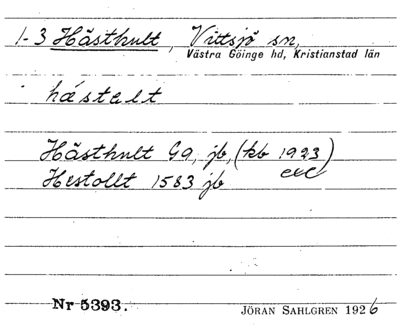 1-3 Hästhult, Vittsjö sn,
Västra Göinge hd, Kristianstad län
hástalt
Hästhult G9, jb, (kb 1923)
Hestollt 1583 jb
Nr 5393.
JÖRAN SAHLGREN 1926